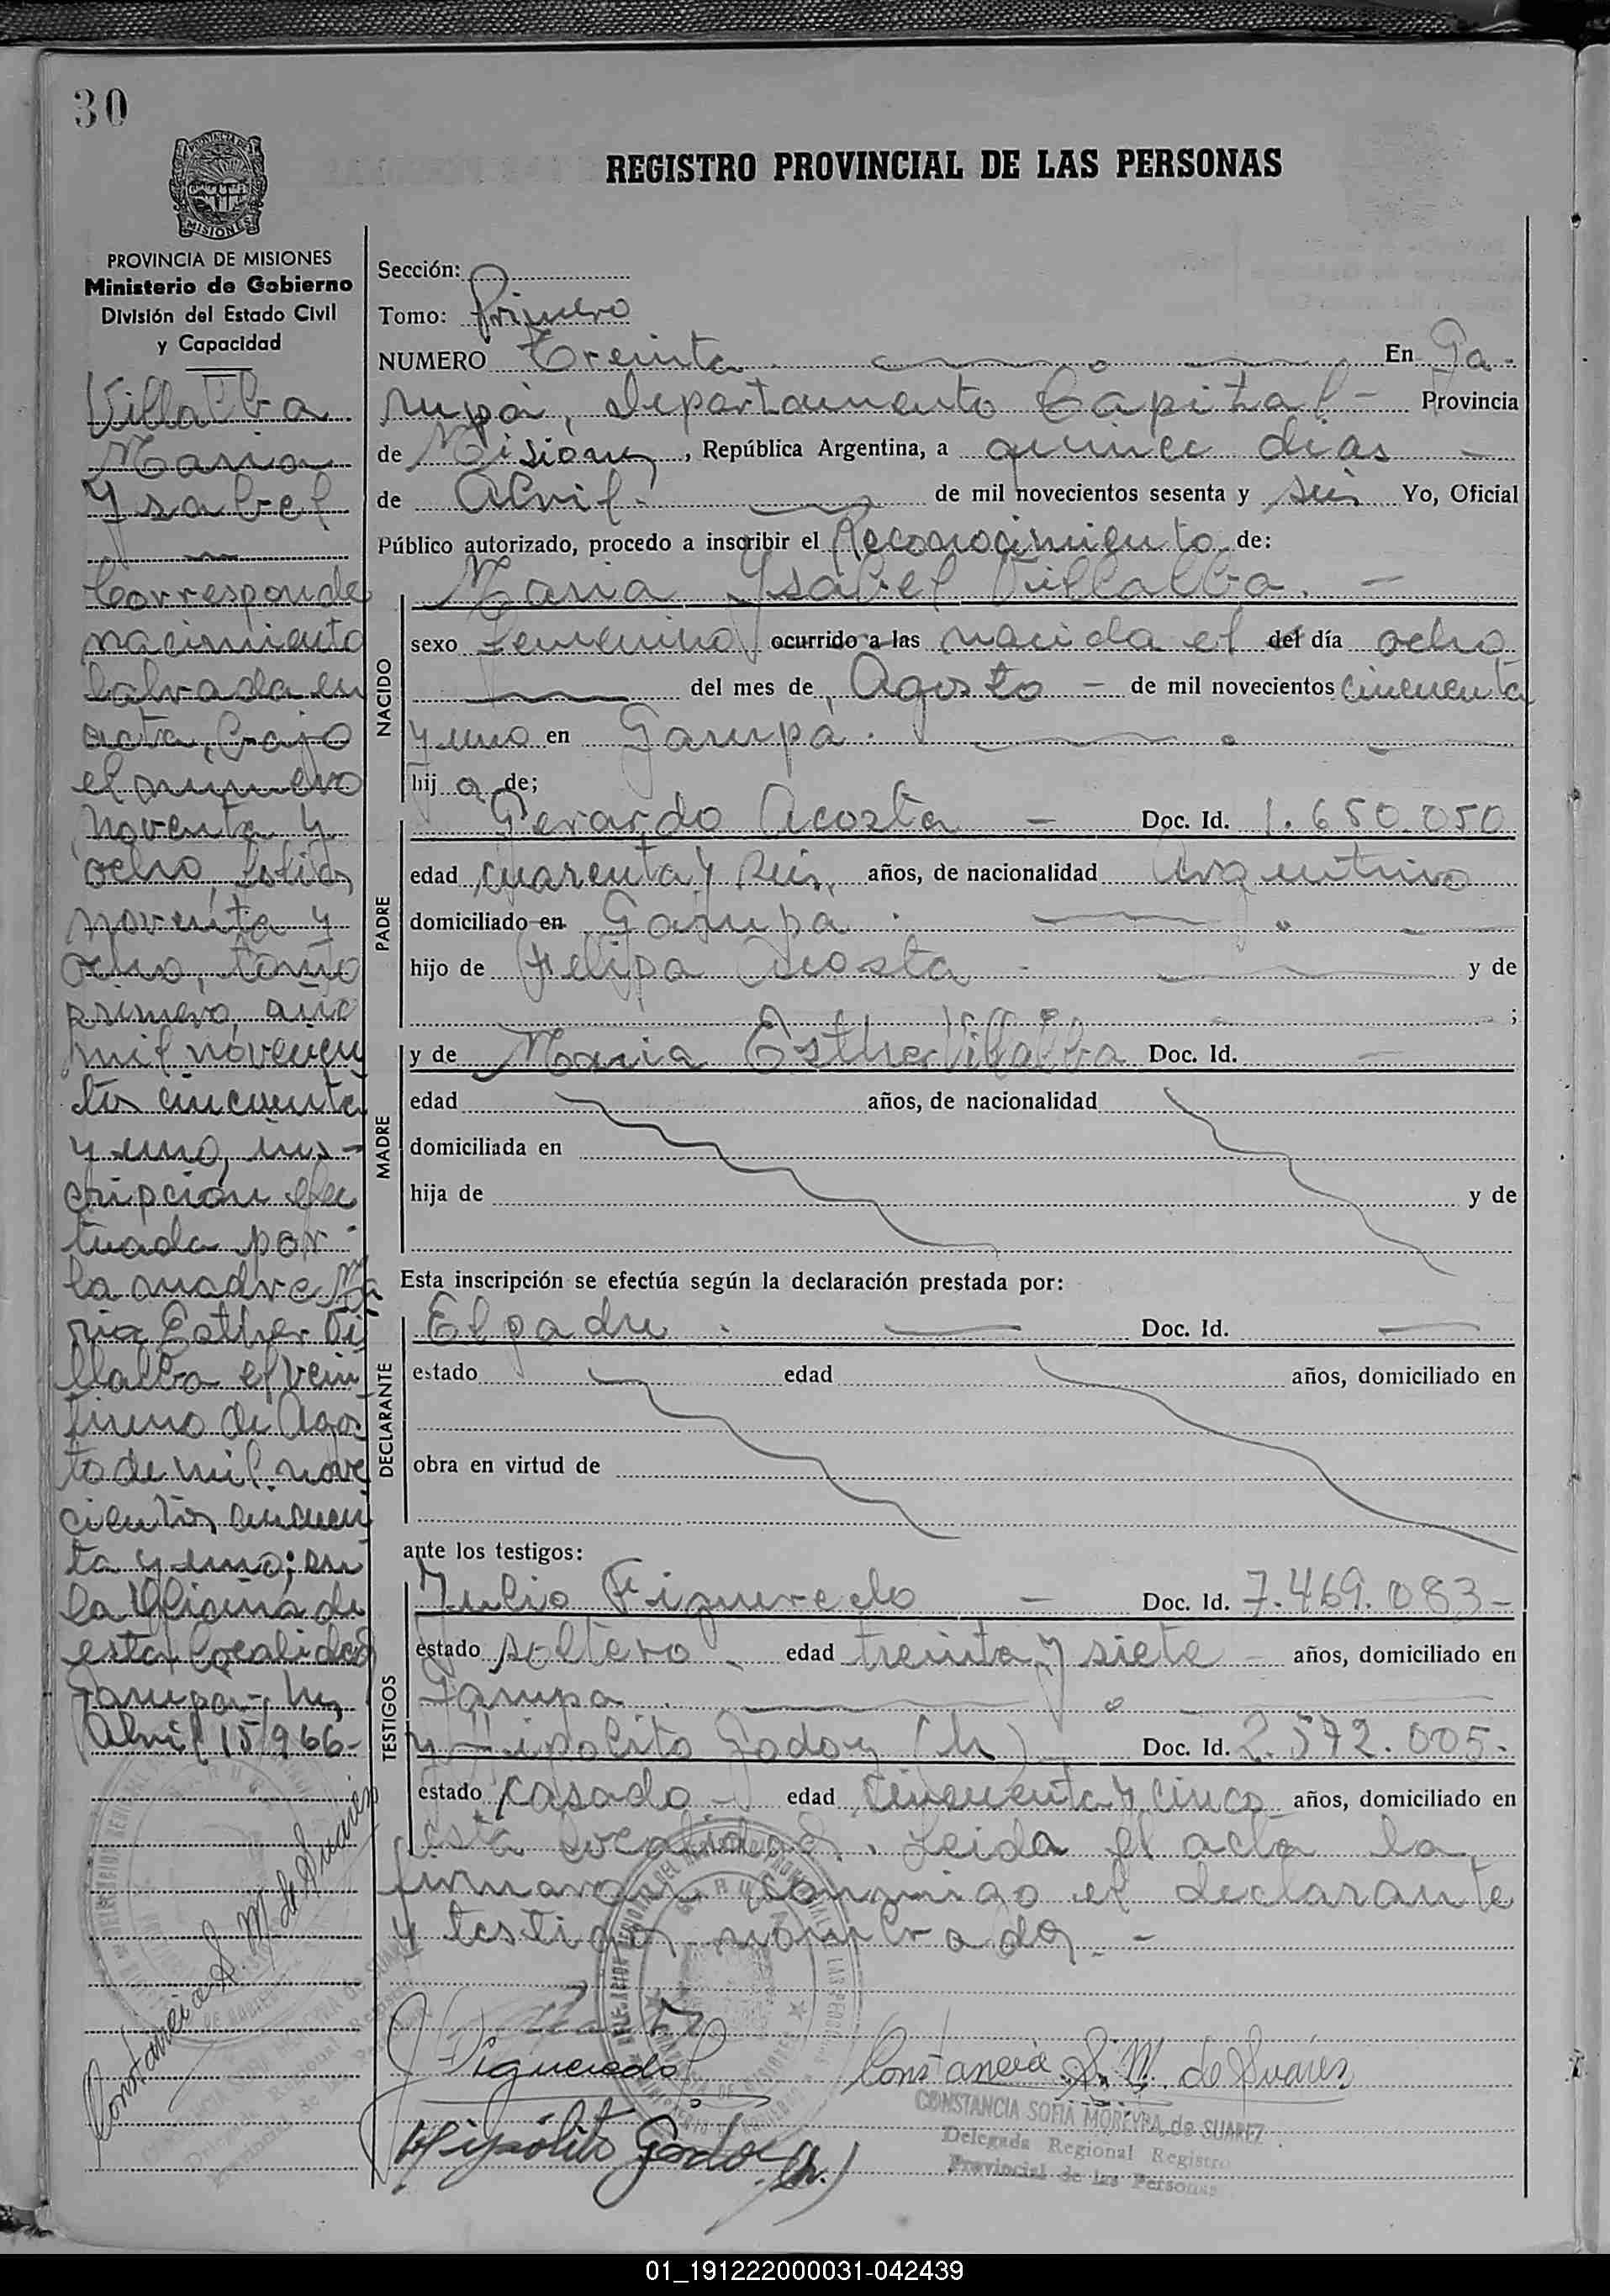 30
REGISTRO PROVINCIAL DE LAS PERSONAS
MISIONES
PROVINCIA DE MISIONES
Ministerio de Gobierno
División del Estado Civil
y Capacidad
Villalba
Maria
Ysabel
Corresponde
nacimiento
labrada en
acta, bajo
el numero
noventa y
ocho, folio,
noventa y
ocho, tomo
primero, año
mil novecien
tos cincuenta
y uno, ins-
cripción efec
tuada por
la madre Ma
ria Esther Vi
llalba el vein
tiuno de Agos
to de mil nove
cientos cincuen
ta y uno; en
la Oficina de
esta localidad
Garupá-
Abril 15/966-
Constancia S. M. de Suarez
Sección:
Tomo: Primero
NUMERO Treinta. En Ga-
rupá, Departamento Capital- Provincia
de Misiones, República Argentina, a quince dias -
de Abril- de mil novecientos sesenta y seis Yo, Oficial
Público autorizado, procedo a inscribir el Reconocimiento de:
Maria Ysabel Villalba. -
NACIDO
sexo femenino ocurrido a las nacida el del día ocho
del mes de Agosto - de mil novecientos cincuenta
y uno en Garupá.
hija de;
PADRE
Gerardo Acosta - Doc. Id. 1.650.050
edad cuarenta y seis, años, de nacionalidad Argentino
domiciliado en Garupá.
hijo de Felipa Acosta - y de
;
MADRE
y de Maria Esther Villalba Doc. Id. -
edad años, de nacionalidad
domiciliada en
hija de y de
Esta inscripción se efectúa según la declaración prestada por:
DECLARANTE
El padre. - Doc. Id. -
estado edad años, domiciliado en
obra en virtud de
ante los testigos:
TESTIGOS
Julio Figueredo - Doc. Id. 7.469.083-
estado soltero - edad treinta y siete - años, domiciliado en
Garupá.
y Hipolito Godoy (h) Doc. Id. 2.572.005-
estado casado - edad cincuenta y cinco años, domiciliado en
esta localidad. Leida el acta la
firmaron conmigo el declarante
y testigos nombrados. -
Figueredo
Constancia S. M. de Suarez
CONSTANCIA SOFIA MOREYRA de SUAREZ
Delegada Regional Registro
Provincial de las Personas
Hipólito Godoy (h.)
01_191222000031-042439